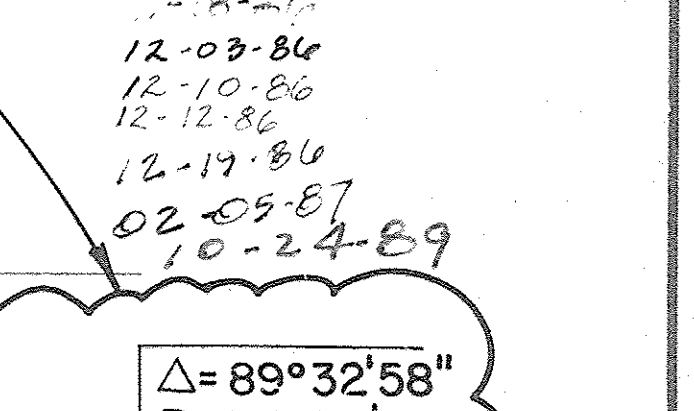 12-03-86
12-10-86
12-12-86
12-19-86
02-05-87
10-24-89
△= 89°32'58"